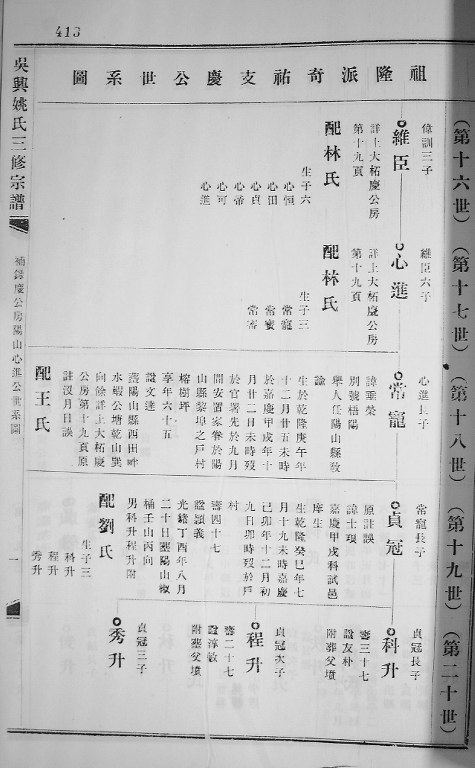 413
吳興姚氏三修宗譜
補錄慶公房陽山心進公世系圖
一
祖隆派奇祐支慶公世系圖
(第十六世)
偉訓三子
維臣
詳上大柘慶公房
第十九頁
配林氏
生子六
心恒
心田
心貞
心帝
心可
心進
(第十七世)
維臣六子
心進
詳上大柘慶公房
第十九頁
配林氏
生子三
常寵
常蜜
常審
(第十八世)
心進長子
常寵
諱垂榮
別號梧陽
舉人任陽山縣教
諭
生於乾隆庚午年
十二月廿五未時
於嘉慶甲戌年十
月廿二日未時歿
於官署先於九月
間安置家眷於陽
山縣黎埠之戶村
榕樹坪
享年六十五
諡文達
葬陽山縣西田
水蝦公塘乾山巽
向餘詳上大柘慶
公房第十九頁原
註沒月日誤
配王氏
(第十九世)
常寵長子
貞冠
原註誤
諱士瑛
嘉慶甲戌科試邑
庠生
生乾隆癸巳年七
月十九未時嘉慶
己卯年十二月初
九日卯時歿於戶
村
壽四十七
諡穎義
光緒丁酉年八月
二十日葬陽山椒
桶壬山丙向
男科升程升附
配劉氏
生子三
科升
程升
秀升
(第二十世)
貞冠長子
科升
壽三十七
諡友朴
附葬父墳
貞冠次子
程升
壽二十七
諡淳敏
附葬父墳
貞冠三子
秀升